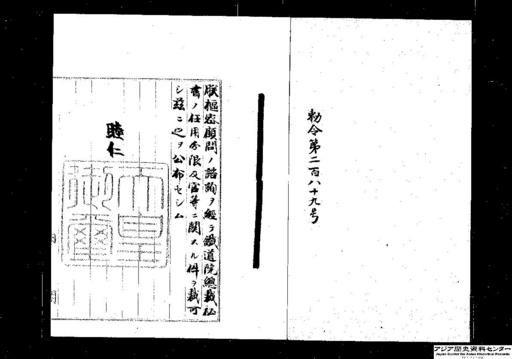 勅令第二百八十九号
朕樞密顧問ノ諮詢ヲ經テ鐵道院總裁祕
書ノ任用分限及官等ニ關スル件ヲ裁可
シ茲ニ之ヲ公布セシム
睦仁
天皇
御璽
アジア歴史資料センター
Japan Center for Asian Historical Records